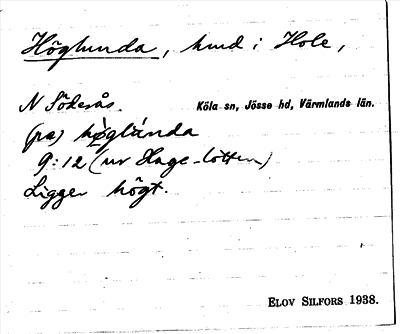 Höglunda, hmd i Hole,
N Sökesås. Köla sn, Jösse hd, Värmlands län.
(pa) höglúnda
9:12 (ur Hage-lotten)
Ligger högt.
ELOV SILFORS 1938.